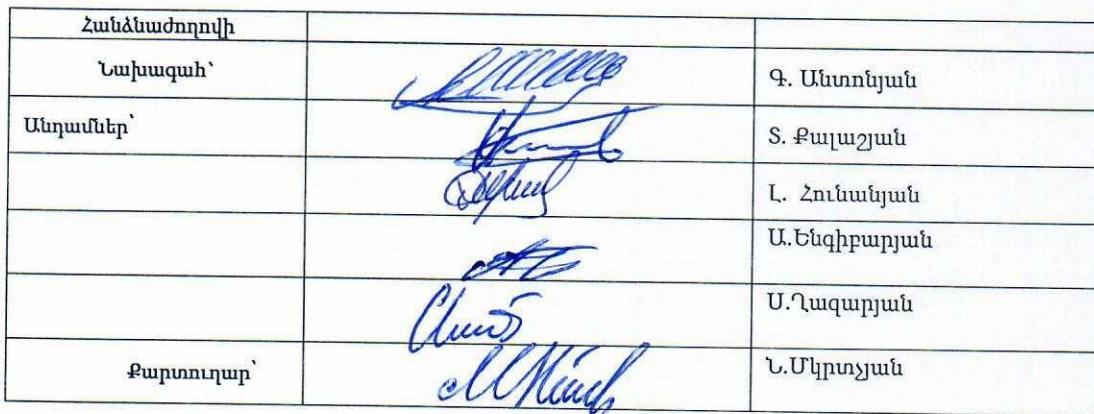 Հանձնաժողովի
Նախագահ՝ Գ. Անտոնյան
Անդամներ՝ Տ. Քալաշյան
Լ. Հունանյան
Ա.Ենգիբարյան
Ս.Ղազարյան
Քարտուղար՝ Ն.Մկրտչյան